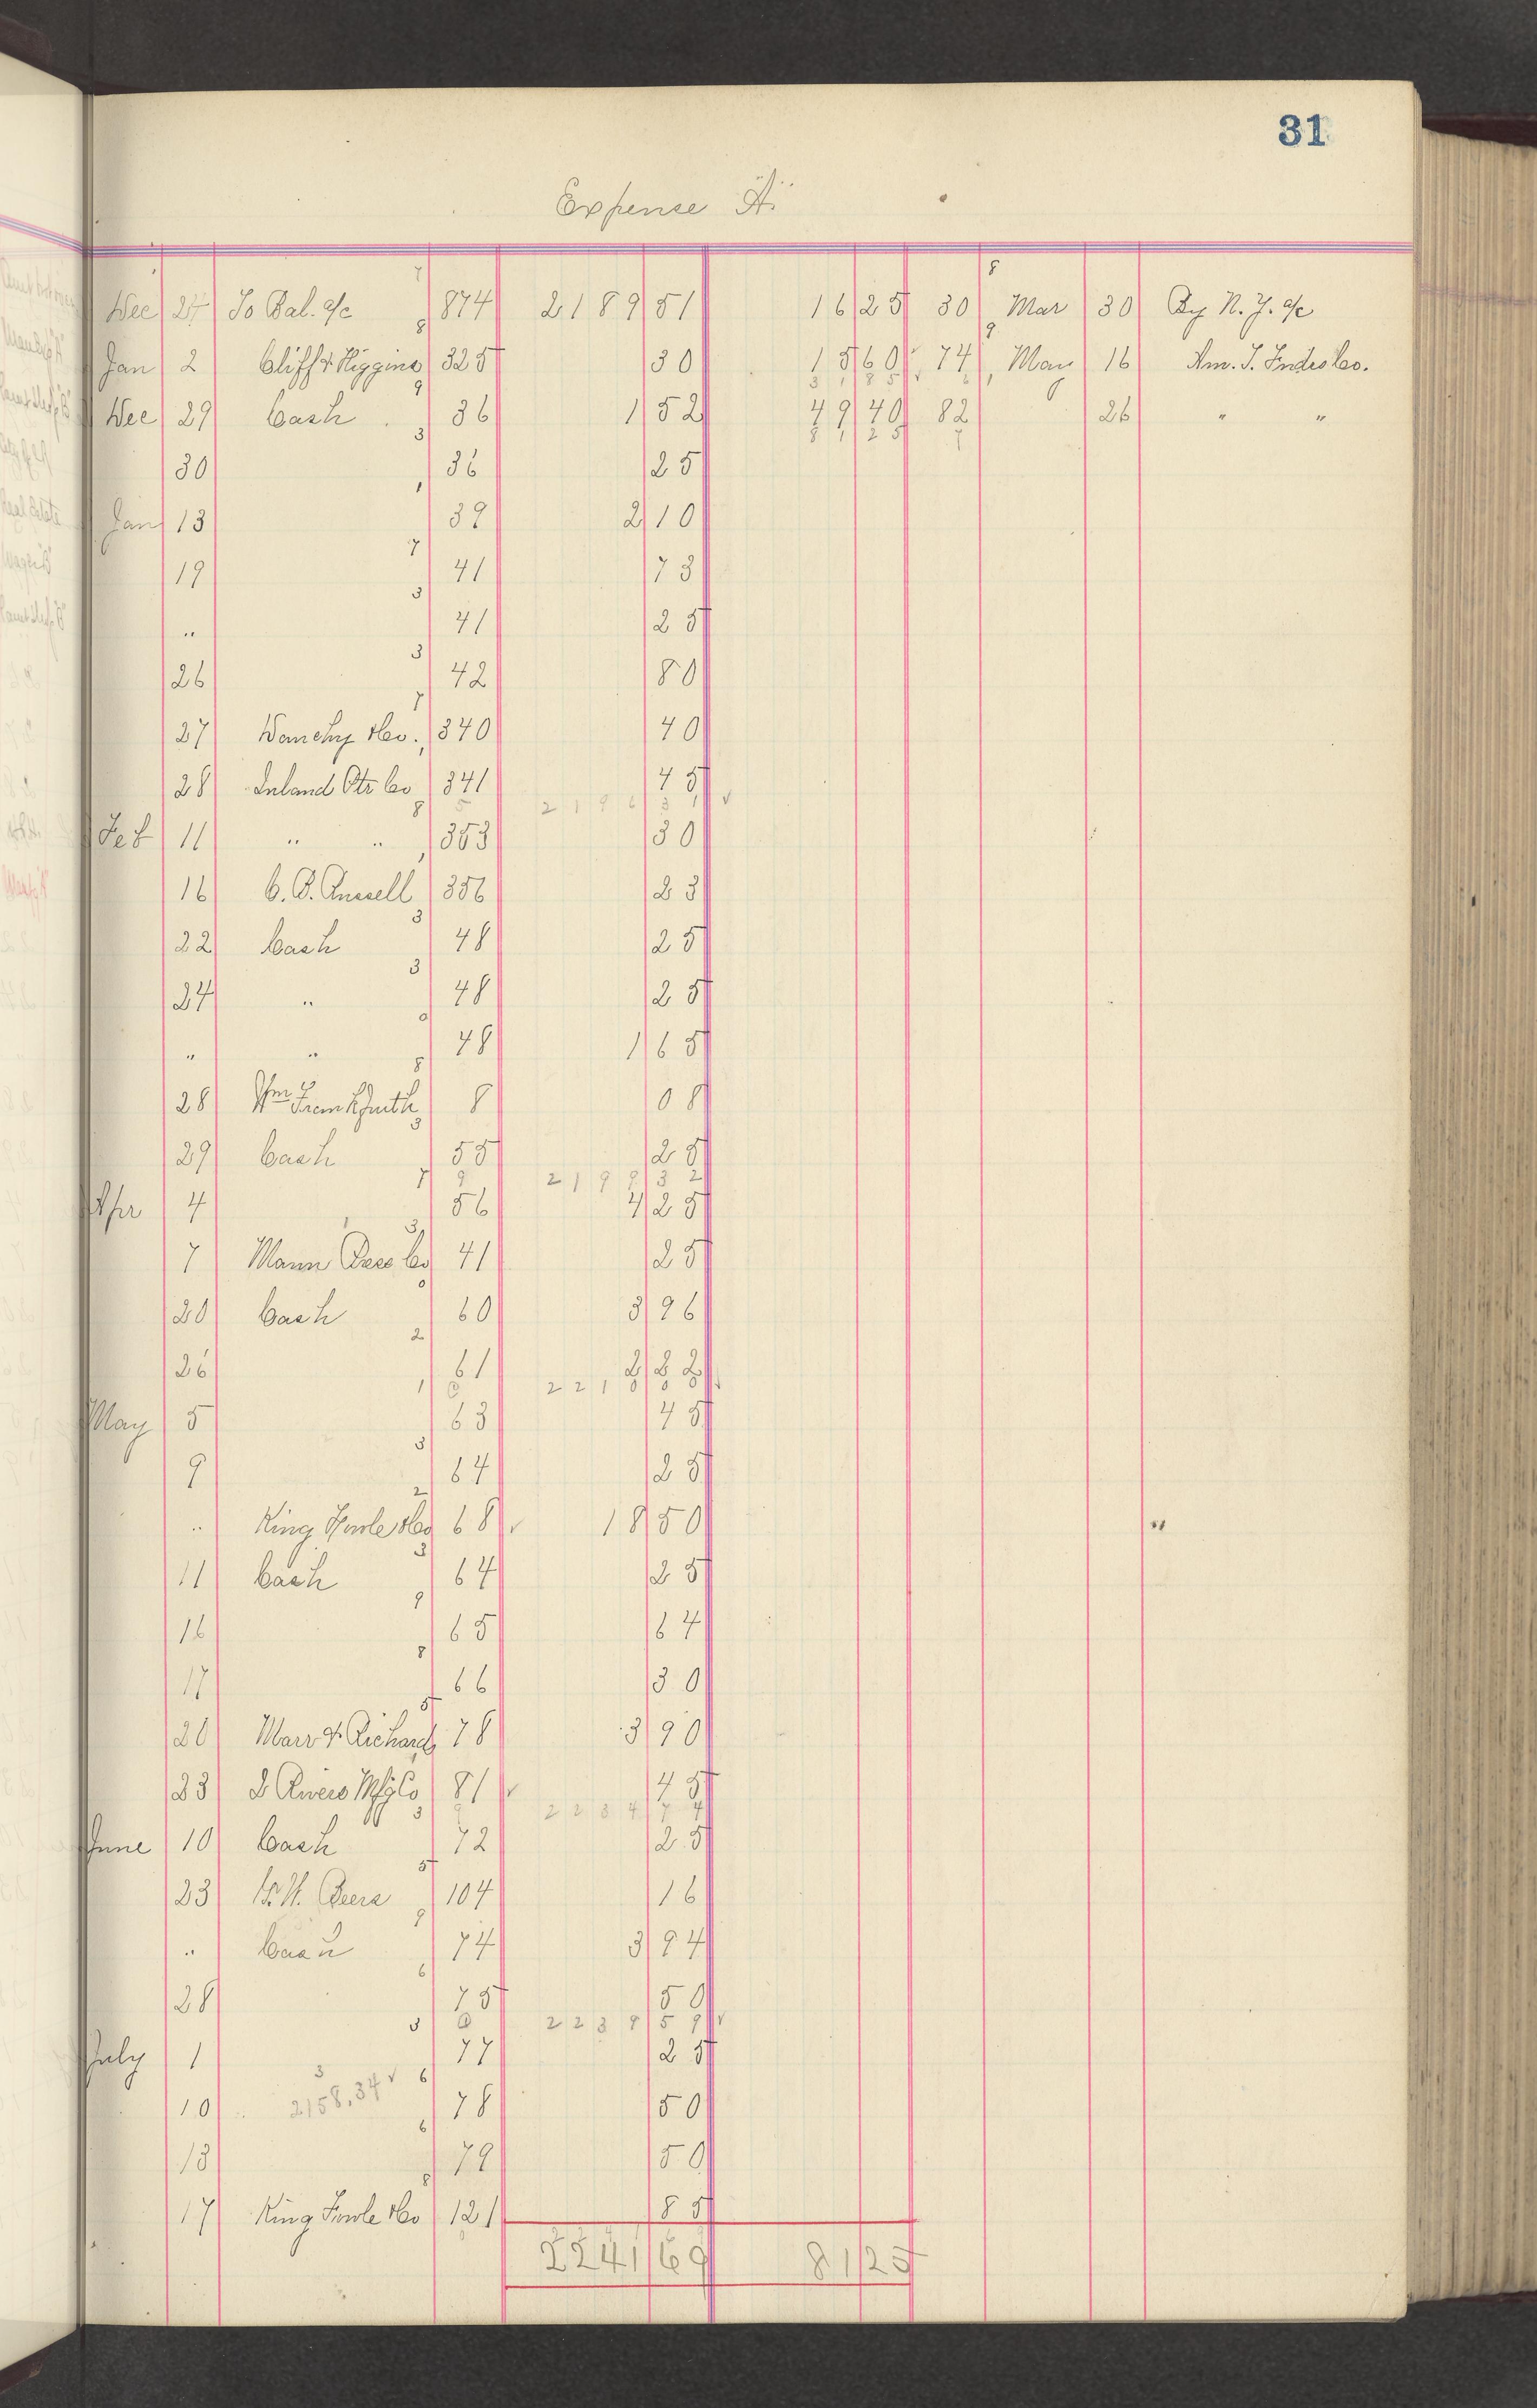 31
Expense A/c
Dec 24 To Bal. a/c 874 2189 51 16 25 30 Mar 30 By N. Y. a/c
Jan 2 Cliff & Higgins 325 30 15 60 74 Mar 16 Am. S. Index Co.
Dec 29 Cash 36 1 52 49 40 82 26 " "
30 36 25
Jan 13 39 2 10
19 41 73
" 41 25
26 42 80
27 340 40
28 Inland Co 341 45
2196 31
Feb 11 " " 353 30
16 356 23
22 Cash 48 25
24 " 48 25
" " 48 1 65
28 Wm 8 08
29 Cash 55 25
2199 32
Apr 4 56 4 25
7 Mann Bros Co 41 25
20 Cash 60 3 96
26 61 2 82
May 5 63 45
9 64 25
" King Fowle & Co 68 18 50
11 Cash 64 25
16 65 64
17 66 30
20 Marr & Richards 78 3 90
23 Mfg Co 81 45
2234 74
June 10 Cash 72 25
23 104 16
" Cash 74 3 94
28 75 50
2239 59
July 1 77 25
10 2158.34 78 50
13 79 50
17 King Fowle & Co 121 85
2241 69 81 25